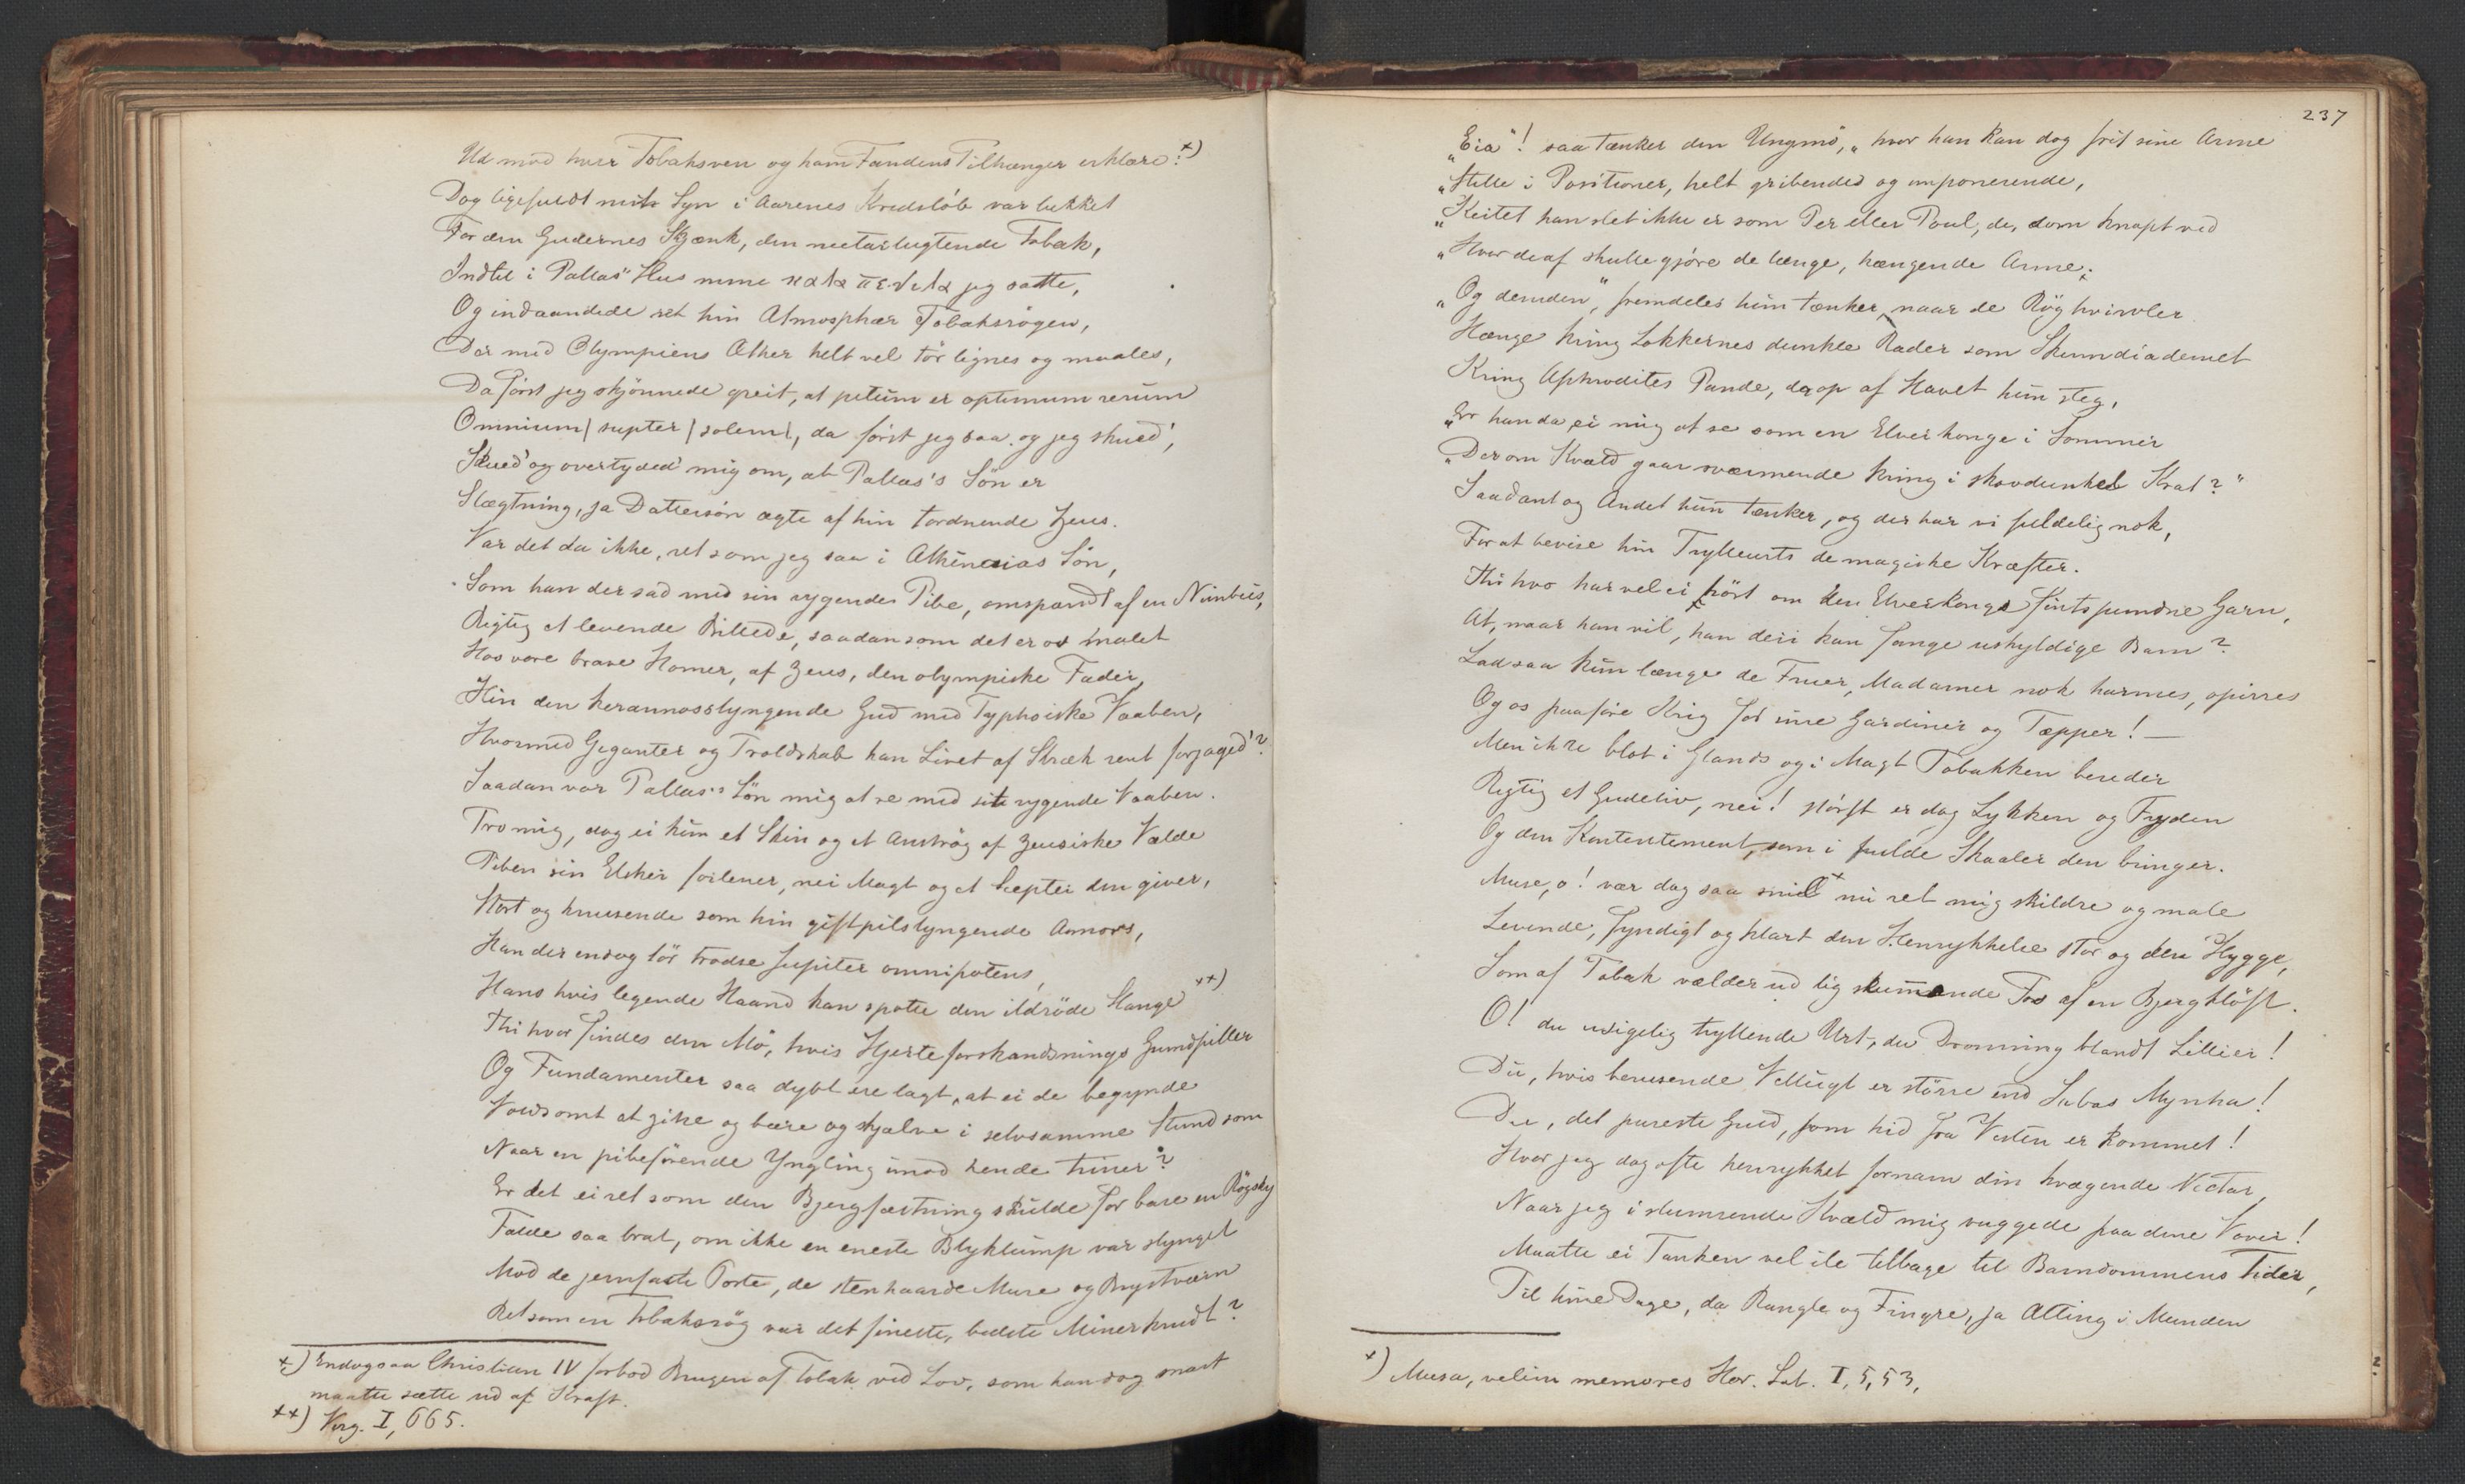 Ud mod hver Tobaksven og ham Fandens Tilhænger erklære? *)
Dog ligefuldt mit Syn i Aarenes Kredsløb var lukket
For den Gudernes Skjænk, den nectarlugtende Tobak,
Indtil i Pallas' Hus mine καλα πεδιλα jeg satte,
Og indaandede ret hin Atmosphær Tobaksrøgen,
Der med Olympiens Æther helt vel tør lignes og maales,
Da først jeg skjønnede greit, at petum er optimum rerum
Omnium / supter / solem /, da først jeg saa og jeg skued',
Skued' og overtyded' mig om, at Pallas's Søn er
Slægtning, ja Dattersøn ægte af hin tordnende Zeus.
Var det da ikke, ret som jeg saa i Athenaias Søn,
Som han der sad med sin rygende Pibe, omspændt af en Nimbus,
Rigtig et levende Billede, saadan som det er os malet
Hos vore brave Homer, af Zeus, den olympiske Fader,
Hin den keraunosslyngende Gud med Typhoiske Vaaben,
Hvormed Giganter og Troldskab han Livet af Skræk rent forjaged'?
Saadan var Pallas's Søn mig at se med sit rygende Vaaben.
Tro mig, dog ei kun et Skin og et Anstrøg af Zeusiske Vælde
Piben sin Elsker forlener, nei Magt og et Scepter den giver,
Stort og knusende som hin giftpilslyngende Amors,
Han der endog tør trodse Jupiter omnipotens,
Hans hvis legende Haand kan spotte den ildrøde Slange **)
Thi hvor findes den Mø, hvis Hjerteforskandsnings Grundpiller
Og Fundamenter saa dybt ere lagt, at ei de begynde
Voldsomt at give og bære og skjælve i selvsamme Stund som
Naar en pibeførende Yngling imod hende triner?
Er det ei ret som den Bjergfæstning skulde for bare en Røgsky
Falde saa brat, om ikke en eneste Blyklump var slynget
Mod de jernfaste Porte, de stenhaarde Mure og Brystværn
Ret som en Tobaksrøg var det fineste, bedste Minerkrudt?
*) Endogsaa Christian IV forbød Brugen af Tobak ved Lov, som han dog snart
maatte sætte ud af Kraft.
**) Virg. I, 665.
237
„Eia"! saa tænker den Ungmø, „hvor han kan dog frit sine Arme
„Stille i Positioner, helt gribende og imponerende,
„Keitet han slet ikke er som Per eller Poul, de, som knapt ved
„Hvor de af skulle gjøre de lange, hængende Arme;
„Og desuden", fremdeles hun tænker, naar de Røghvirvler
Hænge kring Lokkernes dunkle Rader som Skumdiademet
Kring Aphrodites Pande, da op af Havet hun steg,
„Er han da ei mig at se som en Elverkonge i Sommer
„Der om Kvæld gaar sværmende kring i skovdunkel Krat?"
Saadant og Andet hun tænker, og der har vi fuldelig nok,
For at bevise hin Trylleurts de magiske Kræfter.
Thi hvo har vel ei hørt om den Elverkongs fintspundne Garn,
At, naar han vil, han deri kan fange uskyldige Barn?
Lad saa kun længe de Fruer, Madamer nok harmes, opirres
Og os paaføre Krig for sine Gardiner og Tæpper! —
Men ikke blot i Glands og i Magt Tobakken bereder
Rigtig et Gudeliv, nei! størst er dog Lykken og Fryden
Og den Kontentement, som i fulde Skaaler den bringer.
Muse, o! vær dog saa snild *) nu ret mig skildre og male
Levende, fyndigt og klart den Henrykkelse stor og den Hygge,
Som af Tobak vælder ud lig skummende Fos af en Bjergkløft.
O! du usigelig tryllende Urt, du Dronning blandt Lillier!
Du, hvis berusende Vellugt er større end Sabas Myrrha!
Du, det pureste Guld, som hid fra Vesten er kommet!
Hvor jeg dog ofte henrykket fornam din kvægende Nectar,
Naar jeg i slumrende Kvæld mig vuggede paa dine Vover!
Maatte ei Tanken vel ile tilbage til Barndommens Tider,
Til hine Dage, da Rangle og Fingre, ja Alting i Munden
*) Musa, velim memores Hor. Sat. I, 5, 53,